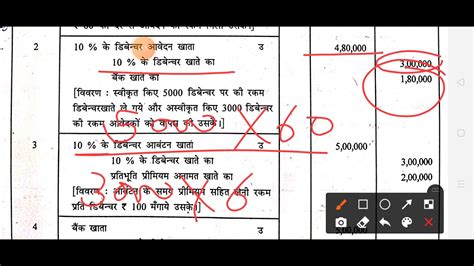 2 10 % के डिबेन्चर आवेदन खाता उ 4,80,000
10 % के डिबेन्चर खाते का 3,00,000
बैंक खाते का 1,80,000
[विवरण : स्वीकृत किए 5000 डिबेन्चर पर की रकम
डिबेन्चरखाते ले गये और अस्वीकृत किए 3000 डिबेन्चर
की रकम आवेदकों को वापस की उसके।]
5000 X 60
3 10 % के डिबेन्चर आबंटन खाता उ 5,00,000
10 % के डिबेन्चर खाते का 3,00,000
प्रतिभूति प्रीमियम अनामत खाते का 2,00,000
3000 X 6
[विवरण : आबंटन के समय प्रीमियम सहित की रकम
प्रति डिबेन्चर ₹ 100 मँगाये उसके।]
4 बैंक खाता उ 5,00,000